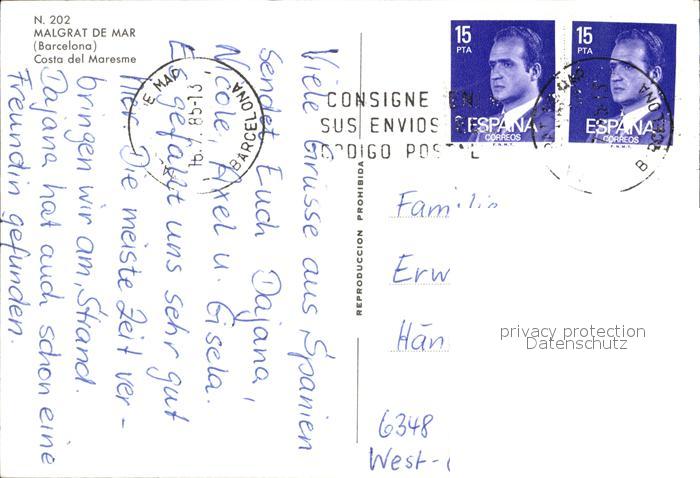 N. 202
MALGRAT DE MAR
(Barcelona)
Costa del Maresme
Viele Grüsse aus Spanien
sendet Euch Dajana,
Nicole Axel u. Gisela.
Es gefällt uns sehr gut
hier. Die meiste Zeit ver-
bringen wir am Strand.
Dajana hat auch schon eine
Freundin gefunden.
BARCELONA
CONSIGNE EN
SUS ENVIOS
CODIGO POSTAL
15
PTA
ESPAÑA
CORREOS
F.N.M.T.
15
PTA
ESPAÑA
CORREOS
F.N.M.T.
BARCELONA
REPRODUCCION PROHIBIDA
Familie
Erw
Hän
6348
West-
privacy protection
Datenschutz